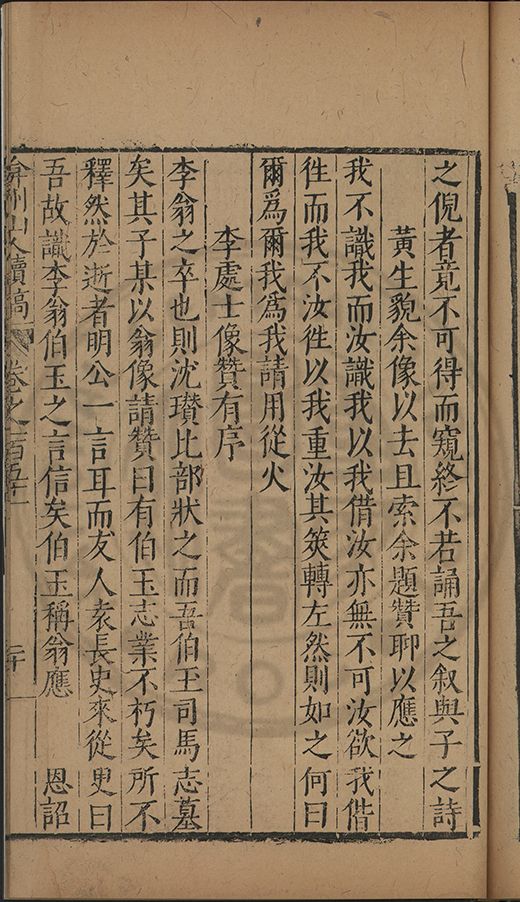 之倪者竟不可得而窺終不若誦吾之叙與子之詩
黃生貌余像以去且索余題贊聊以應之
我不識我而汝識我以我借汝亦無不可汝欲我偕
徃而我不汝徃以我重汝其筴轉左然則如之何曰
爾爲爾我爲我請用從火
李處士像贊有序
李翁之卒也則沈瓚比部狀之而吾伯玉司馬志墓
矣其子某以翁像請贊曰有伯玉志業不朽矣所不
釋然於逝者明公一言耳而友人袁長史來從臾曰
吾故識李翁伯玉之言信矣伯玉稱翁應 恩詔
弇州山人續稿 卷之一百五十 二十